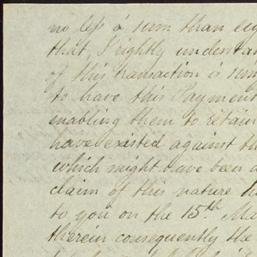 no less a sum than eig
that, I rightly understan
of this transaction is sim
to have this Payment
enabling them to retain
have existed against th
which might have been a
claim of this nature h
to you on the 15th Ma
therein consequently the